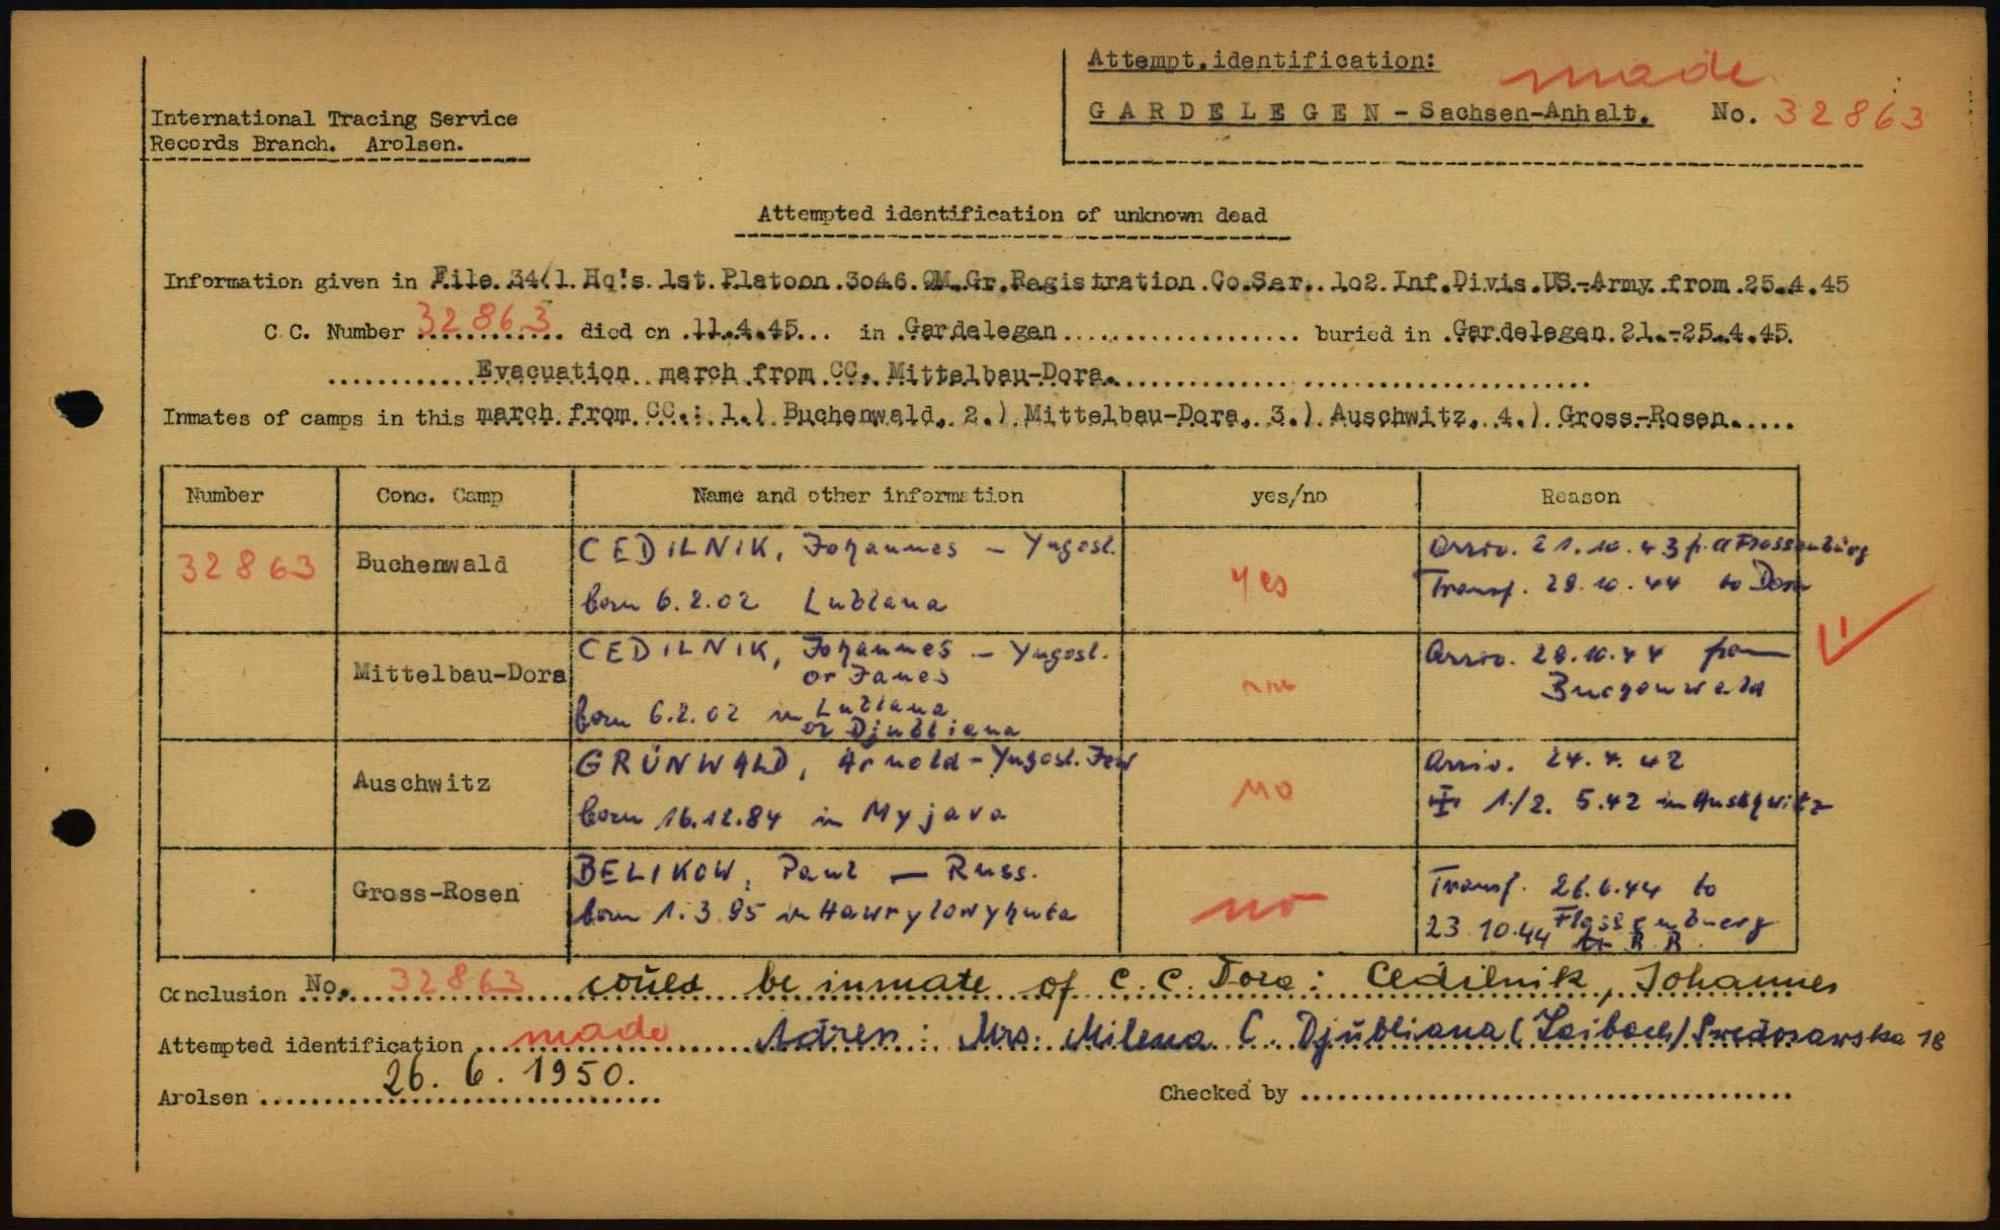 Attempt.identification: made
GARDELEGEN - Sachsen-Anhalt. No. 32863
International Tracing Service
Records Branch. Arolsen.
Attempted identification of unknown dead
Information given in File.34(1.Hq's.1st.Platoon.3o46.QM.Gr.Registration.Co.Ser..1o2.Inf.Divis.US.-Army.from.25.4.45
C.C. Number 32863 died on 11.4.45... in Gardelegen buried in Gardelegen.21.-25.4.45.
Evacuation march from CC. Mittelbau-Dora.
Inmates of camps in this march from CC.: 1.) Buchenwald, 2.) Mittelbau-Dora, 3.) Auschwitz, 4.) Gross-Rosen.
Number Conc. Camp Name and other information yes/no Reason
32863 Buchenwald CEDILNIK, Johannes - Yugosl. yes Arriv. 21.10.43 f. Flossenbürg
born 6.2.02 Lublana Transf. 28.10.44 to Dora
Mittelbau-Dora CEDILNIK, Johannes - Yugosl. Arriv. 28.10.44 from
or Janes Buchenwald
born 6.2.02 in Lublana
or Djubliana
Auschwitz GRÜNWALD, Arnold - Yugosl. Jew no Arriv. 24.4.42
born 16.12.84 in Myjava 1./2. 5.42 in Auschwitz
Gross-Rosen BELIKOW, Paul - Russ. no Transf. 26.6.44 to
born 1.3.95 in Hawrylowyhuta 23.10.44 Flossenbuerg
Conclusion No. 32863 could be inmate of C.C. Dora: Cedilnik, Johannes
Attempted identification made Adress: Mrs. Milena C. Djubliana (Laibach) 18
Arolsen 26. 6. 1950. Checked by